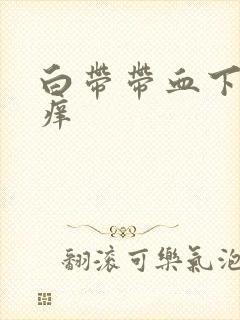 白带帶血下
痒
翻滚可樂氣泡